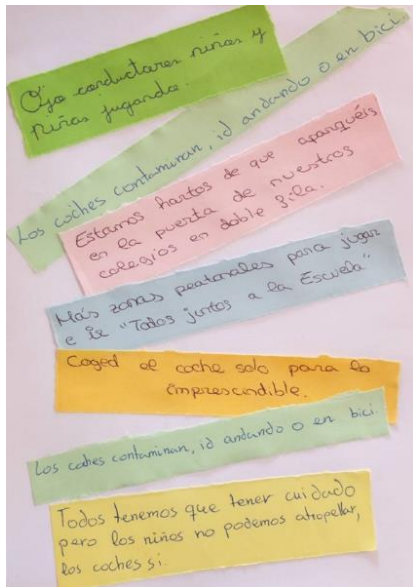 Ojo conductores niños y
niñas jugando.
Los coches contaminan, id andando o en bici.
Estamos hartos de que aparquéis
en la puerta de nuestros
colegios en doble fila.
Más zonas peatonales para jugar
e ir "Todos juntos a la Escuela"
Coged el coche solo para lo
imprescindible.
Los coches contaminan, id andando o en bici.
Todos tenemos que tener cuidado
pero los niños no podemos atropellar,
los coches si.